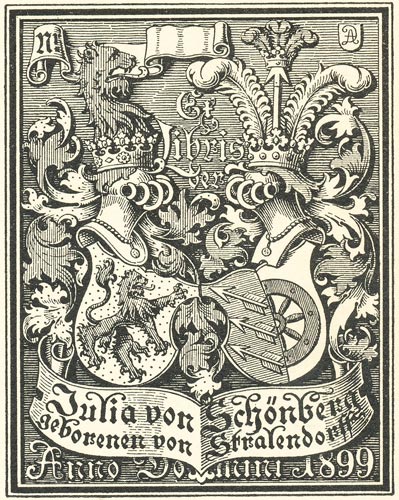 Nº
A
Ex
Libris
von
Julia von Schönberg
geborenen von Stralendorff
Anno Domini 1899